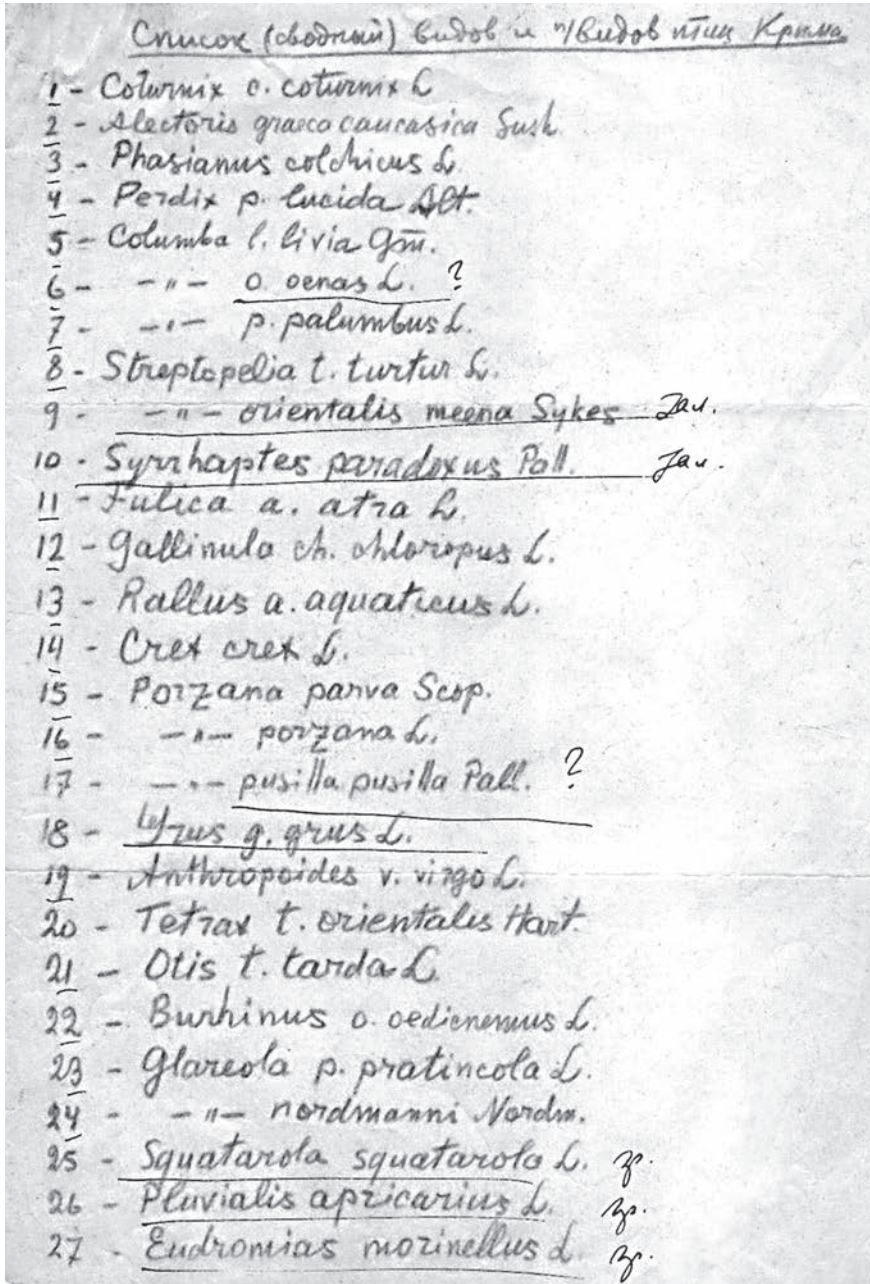 Список (сводный) видов и п/видов птиц Крыма
1 - Coturnix c. coturnix L
2 - Alectoris graeca caucasica Sush.
3 - Phasianus colchicus L.
4 - Perdix p. lucida Alt.
5 - Columba l. livia Gm.
6 - -"- o. oenas L. ?
7 - -"- p. palumbus L.
8 - Streptopelia t. turtur L.
9 - -"- orientalis meena Sykes зал.
10 - Syrrhaptes paradoxus Pall. зал.
11 - Fulica a. atra L.
12 - Gallinula ch. chloropus L.
13 - Rallus a. aquaticus L.
14 - Crex crex L.
15 - Porzana parva Scop.
16 - -"- porzana L.
17 - -"- pusilla pusilla Pall. ?
18 - Grus g. grus L.
19 - Anthropoides v. virgo L.
20 - Tetrax t. orientalis Hart.
21 - Otis t. tarda L.
22 - Burhinus o. oedicnemus L.
23 - Glareola p. pratincola L.
24 - -"- nordmanni Nordm.
25 - Squatarola squatarola L.
26 - Pluvialis apricarius L.
27 - Eudromias morinellus L.